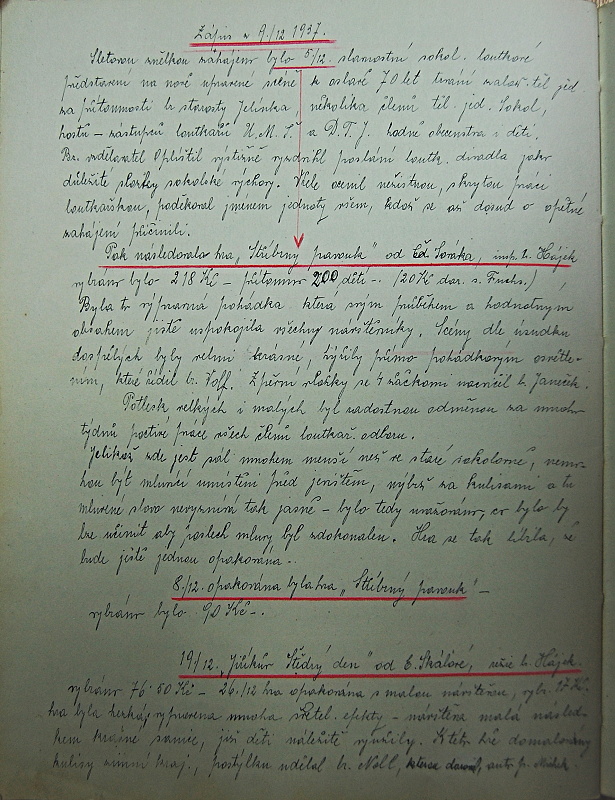 Zápis z 9./12 1937.
Sletovou znělkou zahájeno bylo 5/12. slavnostní sokol. loutkové
představení na nově upravené scéně k oslavě 70 let trvání zdejš. těl. jed.
za přítomnosti br. starosty Jelínka, několika členů těl. jed. Sokol,
hostů – zástupců loutkářů Ú.M.Š. a D.T.J. hodně obecenstva i dětí.
Br. vzdělavatel Oplištil výstižně vyzdvihl poslání loutk. divadla jako
důležité složky sokolské výchovy. Vřele ocenil nezištnou, skrytou práci
loutkářskou, poděkoval jménem jednoty všem, kdož se až dosud o opětné
zahájení přičinili.
Pak následovala hra „Stříbrný pavouk" od Ed. Sováka, insc. br. Hájek
vybráno bylo 218 Kč – přítomno 200 dětí –. (20 Kč dar. s. Fuchs.)
Byla to výpravná pohádka která svým průběhem a hodnotným
obsahem jistě uspokojila všechny návštěvníky. Scény dle úsudku
dospělých byly velmi krásné, hýřily přímo pohádkovým osvětle-
ním, které řídil br. Volf. Zpěvní složky se žáčkami nacvičil br. Janeček.
Potlesk velkých i malých byl radostnou odměnou za mnoho
týdnů poctivé práce všech členů loutkař. odboru.
Jelikož zde jest sál mnohem menší než ve staré sokolovně, nemo-
hou být mluvčí umístěni před jevištěm, nýbrž za kulisami a tu
mluvené slovo nevyznívá tak jasně – bylo tedy uvažováno, co bylo by
lze učinit aby poslech mluvy byl zdokonalen. Hra se tak líbila, že
bude ještě jednou opakována –.
8./12. opakována byla hra „Stříbrný pavouk" –
vybráno bylo 90 Kč –.
19/12. „Jiříkův Štědrý den" od E. Skálové, režie br. Hájek.
vybráno 76·50 Kč – 26./12 hra opakována s malou návštěvou, vybr. Kč.
hra byla hezká, vypravena mnoha světel. efekty – návštěva malá násled-
kem krásné sanice, již děti náležitě využily. hře domalovány
kulisy zimní kraj., postýlku udělal br. Noll,